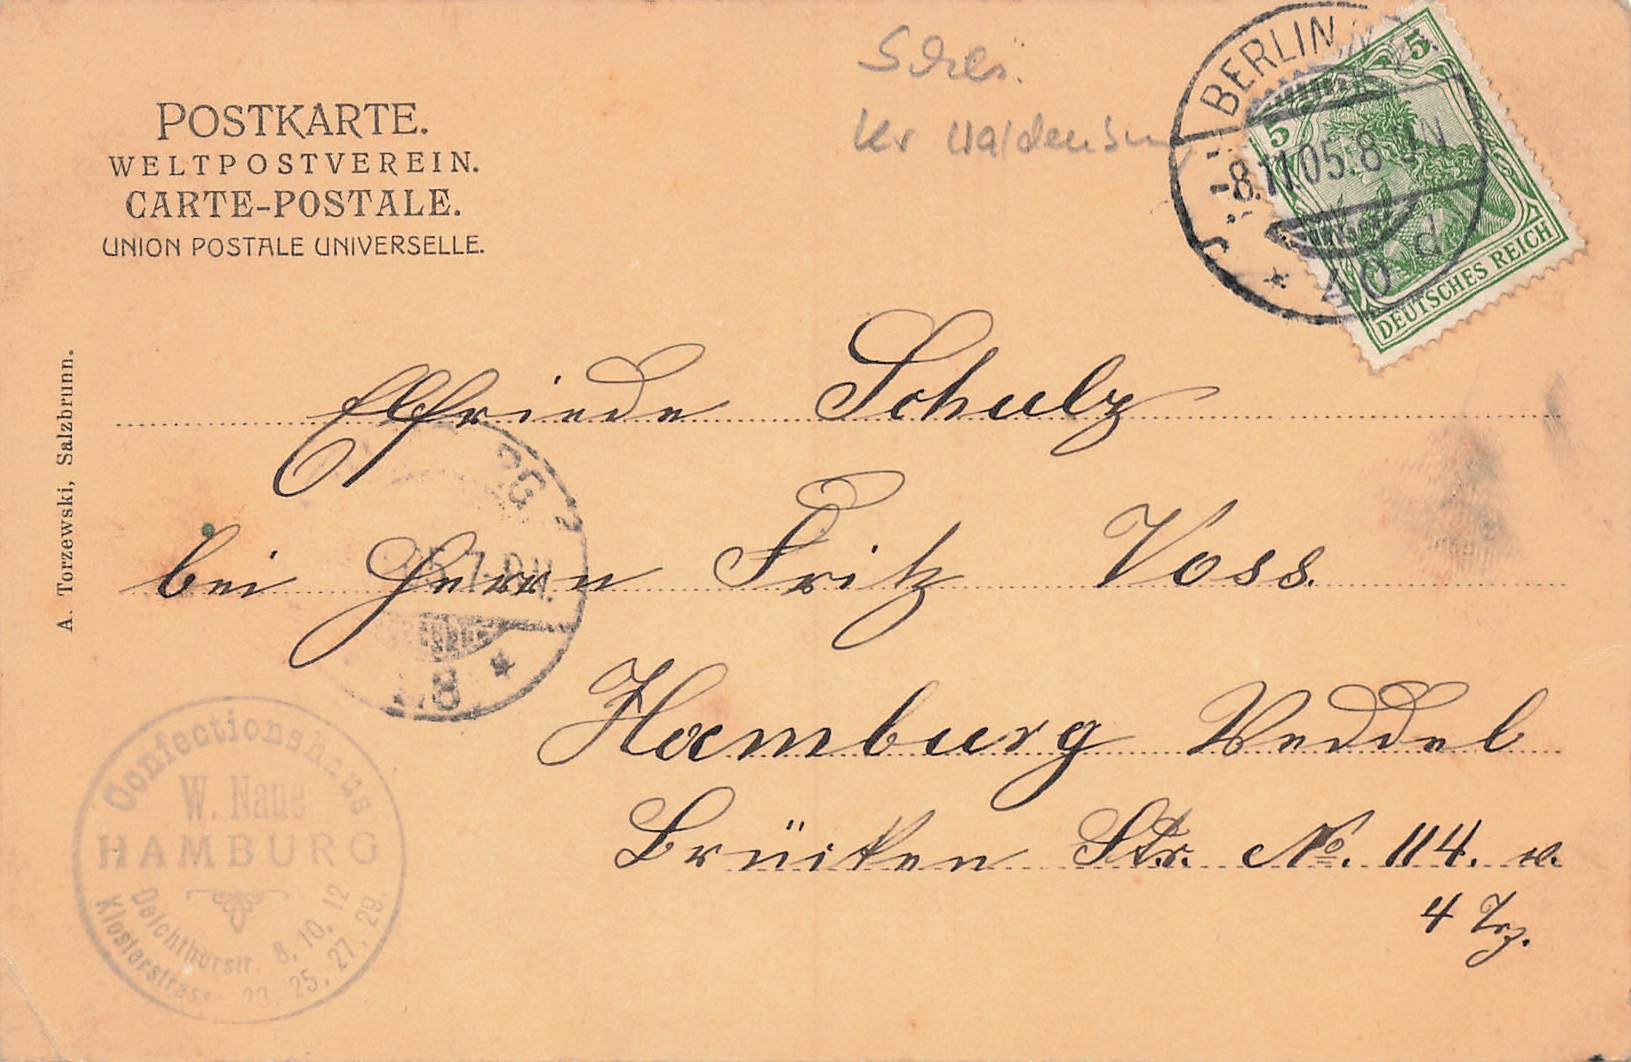 Schles.
Kr Waldenburg
POSTKARTE.
WELTPOSTVEREIN.
CARTE-POSTALE.
UNION POSTALE UNIVERSELLE.
BERLIN
8.11.05.8
40 d
5 5
DEUTSCHES REICH
A. Torzewski, Salzbrunn.
Elfriede Schulz
bei Herrn Fritz Voss.
Hamburg Veddel
Brücken Str. No. 114. v.
4 Trp.
RG
05.7
8
Confectionshaus
W. Naue
HAMBURG
Deichthorstr. 8, 10, 12
Klosterstrasse 23, 25, 27, 29.